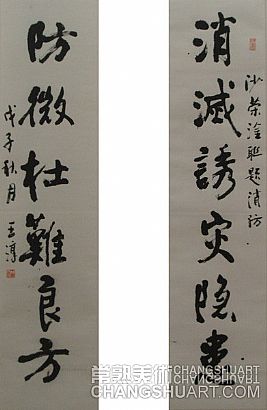 消滅誘災隐患
沙荣淦联题消防
防微杜難良方
戊子秋月
王淳
常熟美術
CHANGSHUART.COM
CHANGSHUART.COM